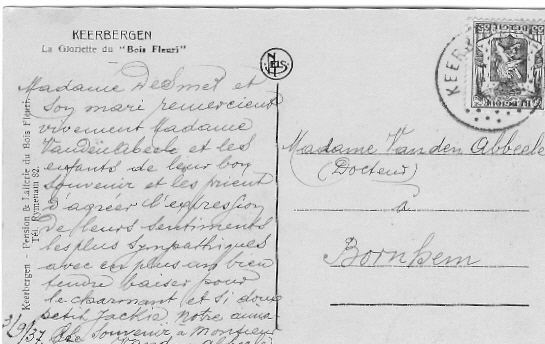 KEERBERGEN
La Gloriette du "Bois Fleuri"
Keerbergen - Pension & Laiterie du Bois Fleuri
Tél. Rymenam 82.
NELS
KEERB
Madame De Smet et
son mari remercient
vivement Madame
Vanden Abbeele et les
enfants de leur bon
souvenir et les prient
d'agréer l'expression
de leurs sentiments
les plus sympathiques
avec en plus un bien
tendre baiser pour
le charmant et si doux
petit Jackie notre
3/9/37 souvenir à Monsieur
Madame Vanden Abbeele
(Docteur)
à
Bornhem